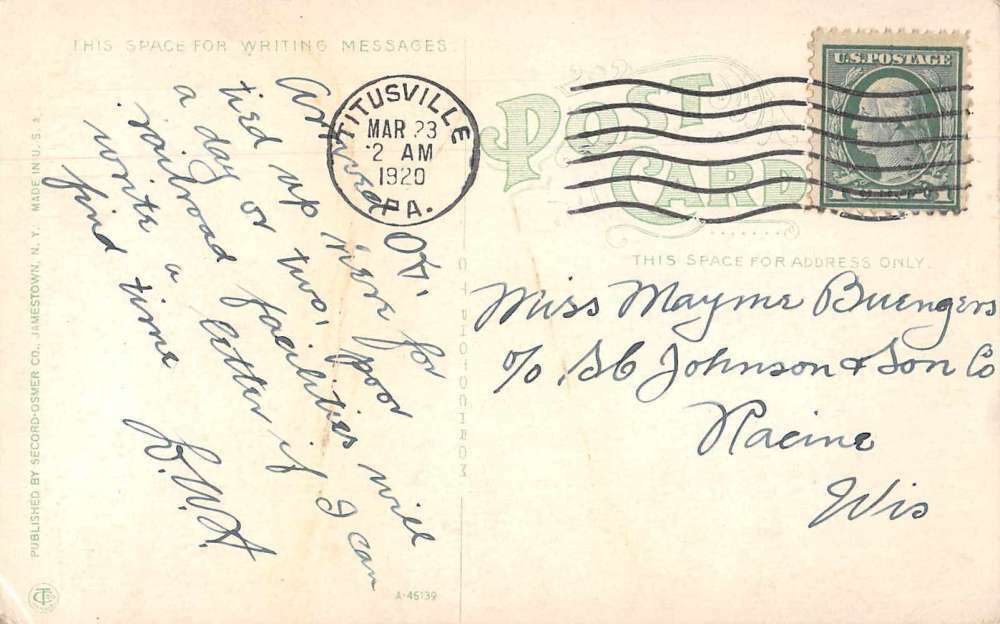 THIS SPACE FOR WRITING MESSAGES
Arrived OK,
tied up here for
a day or two, poor
railroad facilities will
write a letter if I can
find time
L.W.H.
TITUSVILLE
MAR 23
2 AM
1920
PA.
POST
CARD
U.S. POSTAGE
1 1
THIS SPACE FOR ADDRESS ONLY.
Miss Mayme Buengers
c/o SC Johnson & Son Co
Racine
Wis
PUBLISHED BY SECORD-OSMER CO., JAMESTOWN, N. Y. MADE IN U. S. A.
A-45139